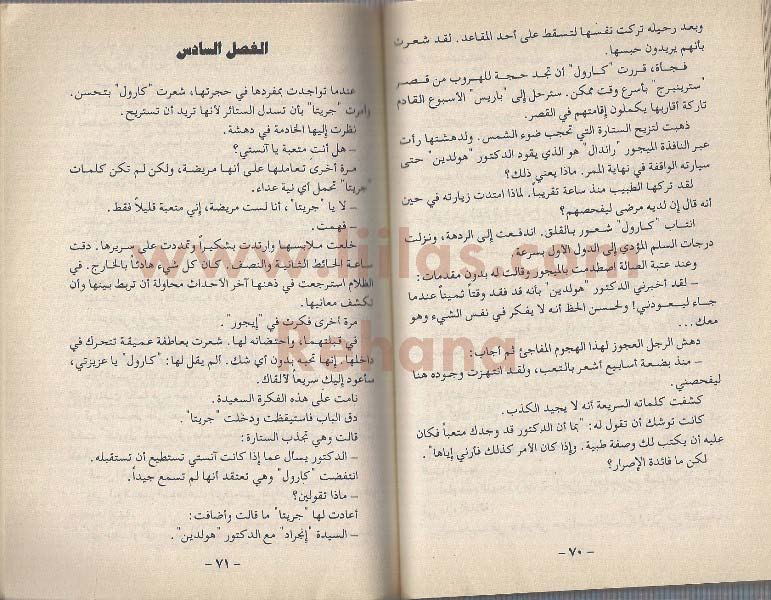 وبعد رحيله تركت نفسها لتسقط على أحد المقاعد. لقد شعرت
بأنهم يريدون حبسها.
فجأة، قررت "كارول" أن تجد حجة للهروب من قصر
"سترينبرج" بأسرع وقت ممكن. سترحل إلى "باريس" الأسبوع القادم
تاركة أقاربها يكملون إقامتهم في القصر.
ذهبت لتزيح الستارة التي تحجب ضوء الشمس. ولدهشتها رأت
عبر النافذة الميجور "راندال" هو الذي يقود الدكتور "هولدين" حتى
سيارته الواقفة في نهاية الممر. ماذا يعني ذلك؟
لقد تركها الطبيب منذ ساعة تقريباً. لماذا امتدت زيارته في حين
أنه قال إن لديه مرضى ليفحصهم؟
انتاب "كارول" شعور بالقلق. اندفعت إلى الردهة، ونزلت
درجات السلم المؤدي إلى الدول الأول بسرعة.
وعند عتبة الصالة اصطدمت بالميجور وقالت له بدون مقدمات:
– لقد أخبرني الدكتور "هولدين" بأنه قد فقد وقتاً ثميناً عندما
جاء ليعودني! ولحسن الحظ أنه لا يفكر في نفس الشيء وهو
معك...
دهش الرجل العجوز لهذا الهجوم المفاجئ ثم أجاب:
– منذ بضعة أسابيع أشعر بالتعب، ولقد انتهزت وجوده هنا
ليفحصني.
كشفت كلماته السريعة أنه لا يجيد الكذب.
كانت توشك أن تقول له: "بما أن الدكتور قد وجدك متعباً فكان
عليه أن يكتب لك وصفة طبية. وإذا كان الأمر كذلك فأرني إياها".
لكن ما فائدة الإصرار؟
– ٧٠ –
الفصل السادس
عندما تواجدت بمفردها في حجرتها، شعرت "كارول" بتحسن.
وأمرت "جريتا" بأن تسدل الستائر لأنها تريد أن تستريح.
نظرت إليها الخادمة في دهشة.
– هل أنت متعبة يا آنستي؟
مرة أخرى تعاملها على أنها مريضة، ولكن لم تكن كلمات
"جريتا" تحمل أي نية عداء.
– لا يا "جريتا"، أنا لست مريضة، إني متعبة قليلاً فقط.
– فهمت.
خلعت ملابسها وارتدت بشكيراً وتمددت على سريرها. دقت
ساعة الحائط الثانية والنصف. كان كل شيء هادئاً بالخارج. في
الظلام استرجعت في ذهنها آخر الأحداث محاولة أن تربط بينها وأن
تكشف معانيها.
مرة أخرى فكرت في "إيجور".
في قبلتهما، واحتضانه لها. شعرت بعاطفة عميقة تتحرك في
داخلها. إنها تحبه بدون أي شك. ألم يقل لها: "كارول" يا عزيزتي،
سأعود إليك سريعاً لألقاك.
نامت على هذه الفكرة السعيدة.
دق الباب فاستيقظت ودخلت "جريتا".
قالت وهي تجذب الستارة:
– الدكتور يسأل عما إذا كانت آنستي تستطيع أن تستقبله.
انتفضت "كارول" وهي تعتقد أنها لم تسمع جيداً.
– ماذا تقولين؟
أعادت لها "جريتا" ما قالت وأضافت:
– السيدة "إنجراد" مع الدكتور "هولدين".
– ٧١ –
www.liilas.com
Rehana